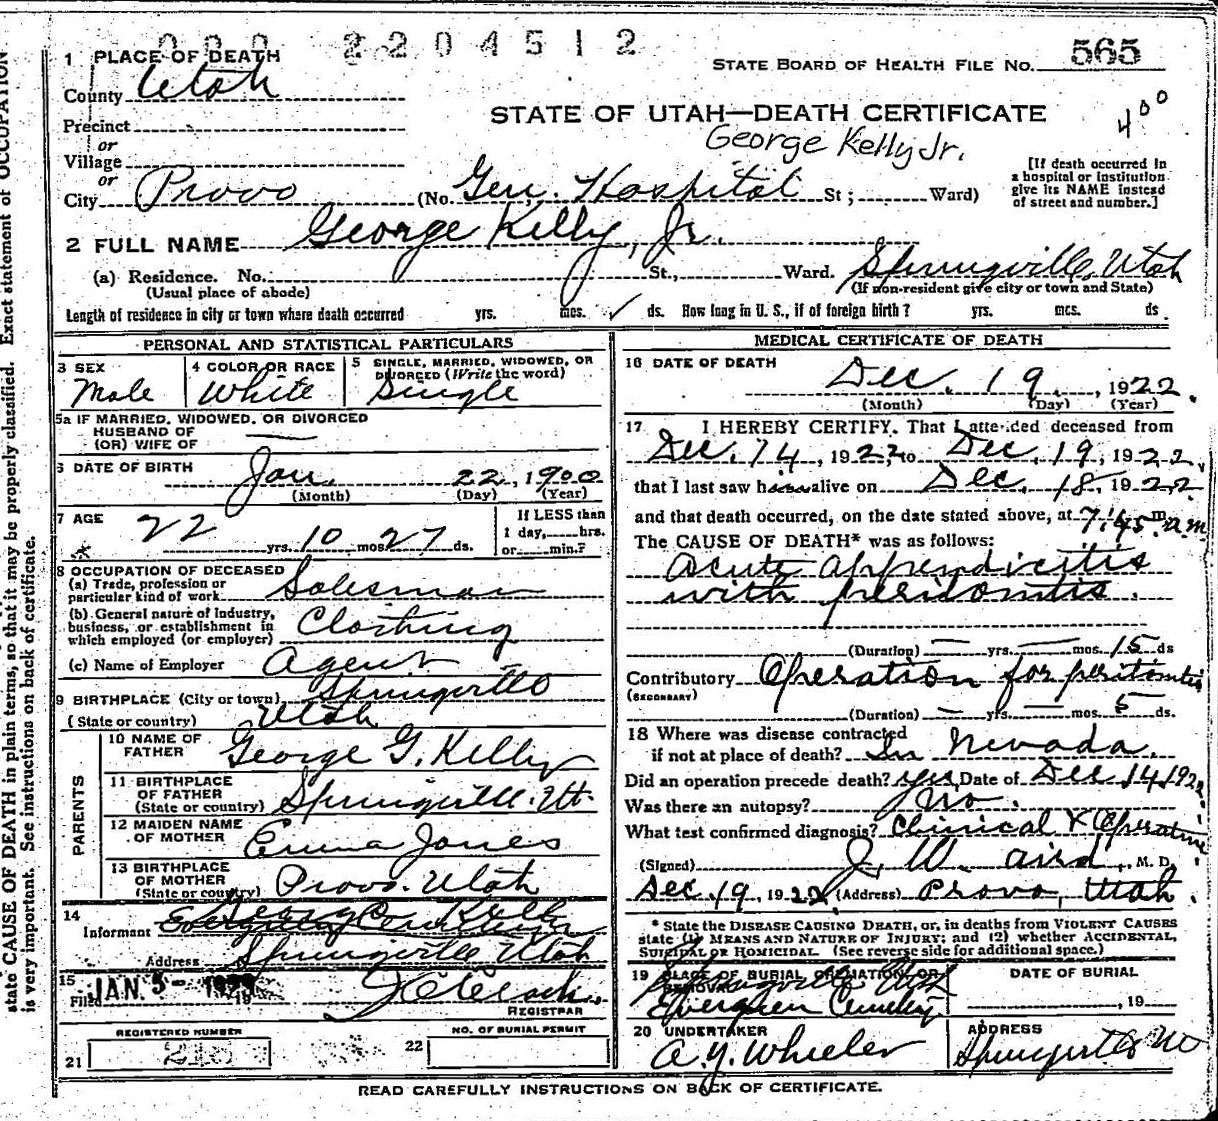 000 2204512
1 PLACE OF DEATH
STATE BOARD OF HEALTH FILE No. 565
County Utah
STATE OF UTAH—DEATH CERTIFICATE
400
Precinct
or
George Kelly Jr.
Village
or
City Provo (No. Gen. Hospital St; Ward)
[If death occurred in a hospital or institution give its NAME instead of street and number.]
2 FULL NAME George Kelly, Jr.
(a) Residence. No. St., Ward. Springville, Utah
(Usual place of abode) (If non-resident give city or town and State)
Length of residence in city or town where death occurred yrs. mos. ✓ ds. How long in U. S., if of foreign birth? yrs. mos. ds.
PERSONAL AND STATISTICAL PARTICULARS
3 SEX
Male
4 COLOR OR RACE
White
5 SINGLE, MARRIED, WIDOWED, OR DIVORCED (Write the word)
Single
5a IF MARRIED, WIDOWED, OR DIVORCED
HUSBAND OF
(OR) WIFE OF —
6 DATE OF BIRTH
Jan. 22, 1900
(Month) (Day) (Year)
7 AGE
22 yrs. 10 mos. 27 ds.
If LESS than
1 day, hrs.
or min.?
8 OCCUPATION OF DECEASED
(a) Trade, profession or particular kind of work Salesman
(b) General nature of Industry, business, or establishment in which employed (or employer) Clothing
(c) Name of Employer Agent
9 BIRTHPLACE (City or town) Springville
(State or country) Utah
PARENTS
10 NAME OF FATHER George G. Kelly
11 BIRTHPLACE OF FATHER (State or country) Springville. Ut.
12 MAIDEN NAME OF MOTHER Emma Jones
13 BIRTHPLACE OF MOTHER (State or country) Provo. Utah
14
Informant
Address Springville Utah
15
Filed JAN 5-
REGISTRAR
REGISTERED NUMBER
21
NO. OF BURIAL PERMIT
22
MEDICAL CERTIFICATE OF DEATH
16 DATE OF DEATH
Dec. 19, 1922.
(Month) (Day) (Year)
17 I HEREBY CERTIFY, That I attended deceased from
Dec. 14, 1922, to Dec. 19, 1922,
that I last saw him alive on Dec. 18, 1922
and that death occurred, on the date stated above, at 7:45 a.m.
The CAUSE OF DEATH* was as follows:
Acute appendicitis
with peritonitis.
(Duration) — yrs. — mos. 15 ds
Contributory Operation for peritonitis
(SECONDARY)
(Duration) — yrs. — mos. 5 ds.
18 Where was disease contracted
if not at place of death? In Nevada.
Did an operation precede death? yes Date of Dec 14 1922
Was there an autopsy? No.
What test confirmed diagnosis? Clinical & Operative
(Signed) J. W. Aird, M. D.
Dec. 19, 1922 (Address) Provo, Utah.
* State the DISEASE CAUSING DEATH, or, in deaths from VIOLENT CAUSES
state (1) MEANS AND NATURE OF INJURY; and (2) whether ACCIDENTAL,
SUICIDAL or HOMICIDAL. (See reverse side for additional space.)
19 PLACE OF BURIAL CREMATION, OR REMOVAL
Springville Utah
Evergreen Cemetery
DATE OF BURIAL
, 19
20 UNDERTAKER
A. Y. Wheeler
ADDRESS
Springville Ut
READ CAREFULLY INSTRUCTIONS ON BACK OF CERTIFICATE.
state CAUSE OF DEATH in plain terms, so that it may be properly classified. Exact statement of OCCUPATION
is very important. See instructions on back of certificate.